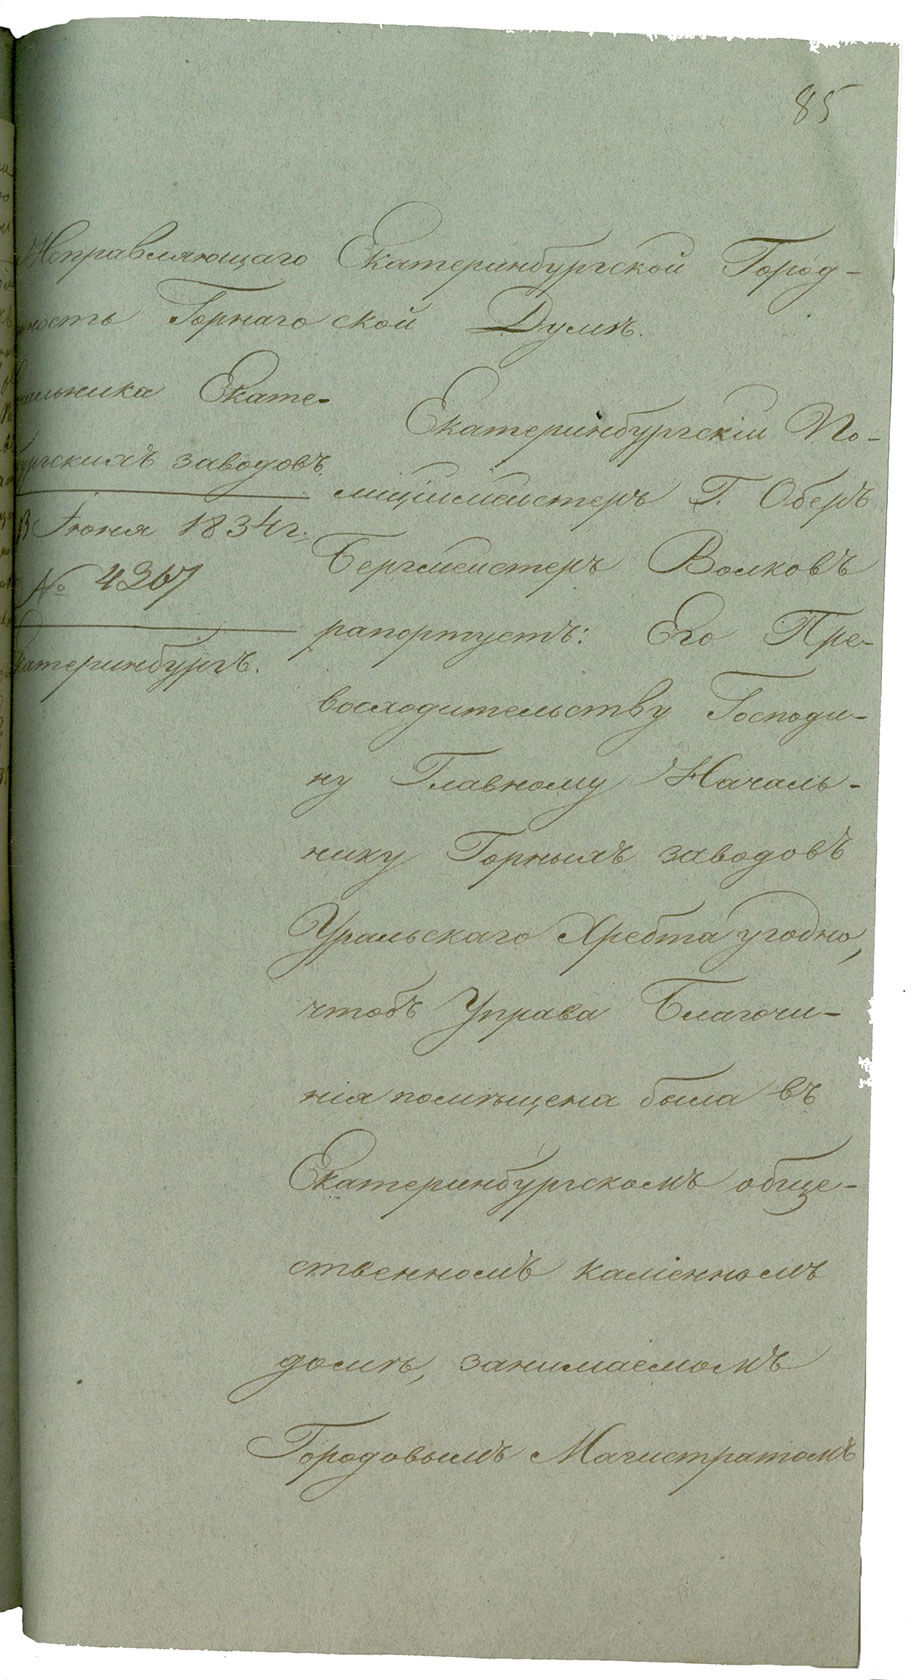 85
Исправляющаго
ность Горнаго
чальника Екате-
бургскихъ заводовъ
13 Іюня 1834 г.
№ 4367
Катеринбургъ.
Екатеринбургской Город-
ской Думѣ.
Екатеринбургскій По-
лиціймейстеръ Г. Оберъ
Бергмейстеръ Волковъ
рапортуетъ: Его Пре-
восходительству Господи-
ну Главному Началь-
нику Горныхъ заводовъ
Уральскаго Хребта угодно,
чтобъ Управа Благочи-
нія помѣщена была въ
Екатеринбургскомъ обще-
ственномъ каменномъ
домѣ, занимаемомъ
Городовымъ Магистратомъ